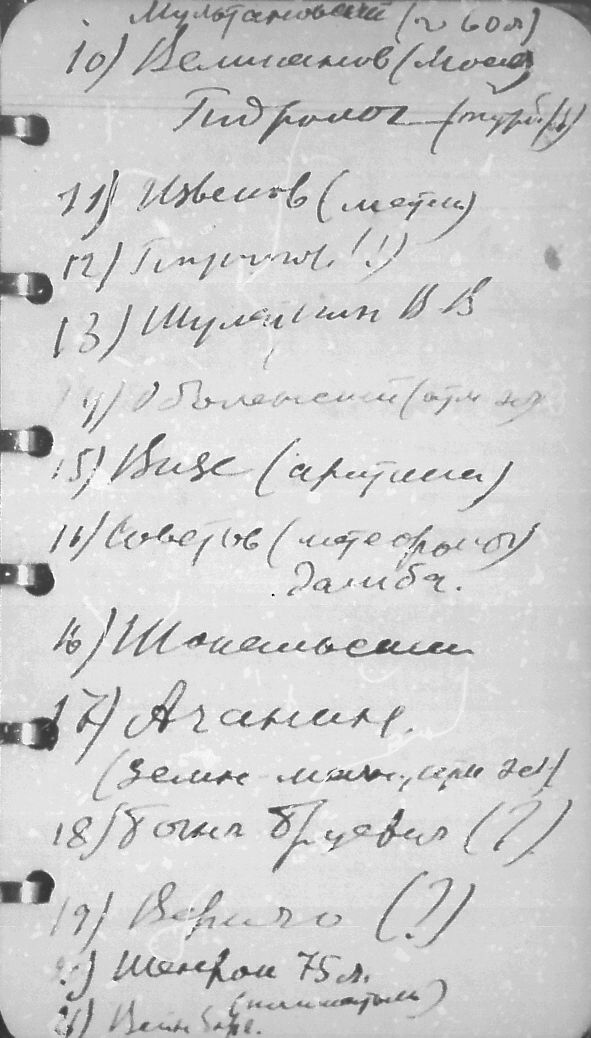 Мультановский (~ 60 л)
10) Великанов (Москв
Гидролог
11) Извеков (метеор)
12) (!)
13) Шулейкин В В
14) Оболенский (атм эл)
15) Визе (арктика)
16) Советов (метеоролог)
дамба.
16) Шокальский
17) Аганин.
(земн магн, атм эл)
18) Бонч Бруевич (?)
19) Вериго (?)
20) Шенрок 75 л.
21) Вейнберг.